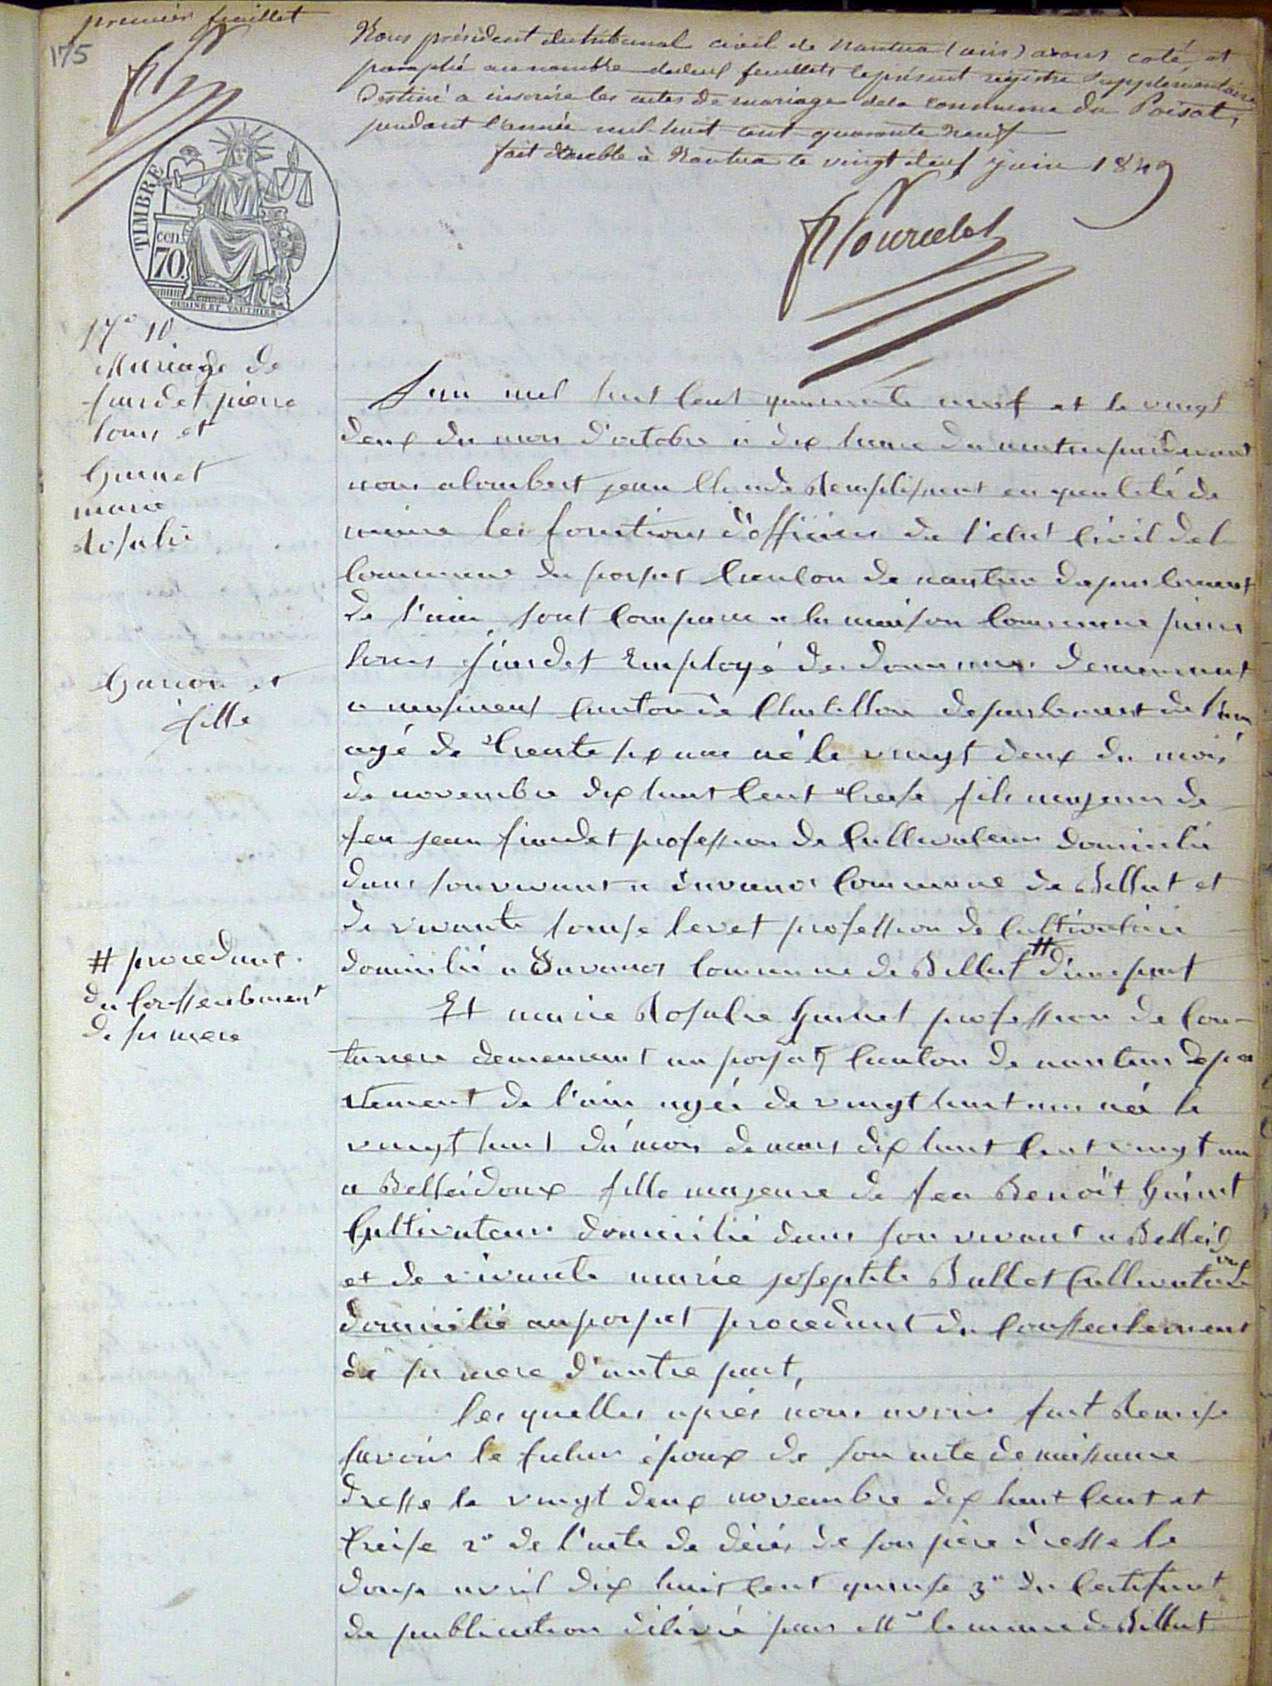 premier feuillet
175
Nous président du tribunal civil de Nantua (ain) avons coté et
paraphé au nombre de deux feuillets le présent registre supplémentaire
Destiné a inscrire les actes de mariage de la commune du Poisat,
pendant l'année mil huit cent quarante neuf
fait double à Nantua le vingt neuf juin 1849
TIMBRE
cen.
70.
OUDINE ET VAUTHIER
N° 10
Mariage de
pierre
louis et
Guinet
marie
Rosalie
Garcon et
fille
# procedant
du conssentement
de sa mere
L'an mil huit cent quarante neuf et le vingt
deux du mois d'octobre a dix heure du matin pardevant
nous alombert jean Claude Remplissant en qualité de
maire les fonctions d'officier de l'etat civil de la
commune du poisat canton de nantua departement
de l'ain, sont comparu a la maison commune pierre
louis employé des douannes demeurant
a canton de Chatillon departement de l'ain
agé de trente six ans né le vingt deux du mois
de novembre dix huit cent treise fils majeur de
feu jean profession de cultivateur domicilié
dans son vivant a commune de Billiat et
de vivante louise levet profession de cultivatrice
domicilié a commune de Billiat # d'une part
Et marie Rosalie Guinet profession de cou-
turiere demeurant au poisat canton de nantua depar
tement de l'ain agée de vingt huit ans née le
vingt huit du mois de mars dix huit cent vingt un
a Belleidoux fille majeure de feu Benoît Guinet
Cultivateur domicilié dans son vivant a Belleid
oux
et de vivante marie josephte Ballet cultivatrice
domicilié au poisat procedant du conssentement
de sa mere d'autre part,
les quelles après nous avoir fait Remise
savoir le futur époux de son acte de naissance
dresse le vingt deux novembre dix huit cent et
treise 2° de l'acte de décés de son père dresse le
douse avril dix huit cent quinse 3° du certificat
de publication délivré par Mr le maire de Billiat